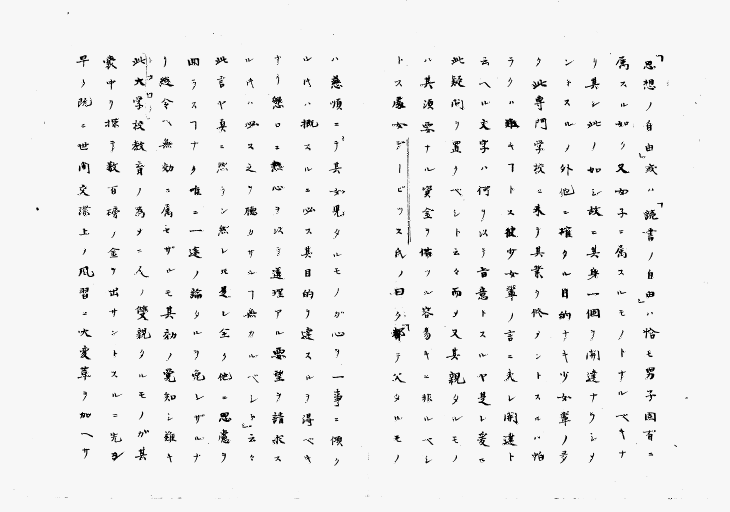 「思想ノ自由」或ハ「読書ノ自由」ハ恰モ男子固有ニ
属スル如ク又女子ニ属スルモノトナルベキナ
リ其レ此ノ如シ故ニ其身一個ヲ開達ナラシメ
ントスルノ外他ニ確タル目的ナキ少女輩ノ多
ク此専門学校ニ来リ其業ヲ修メントスルハ怕
ラクハ難キヿトス彼少女輩ノ言ニ夫レ開達ト
云ヘル文字ハ何ヲ以テ言意トスルヤ是レ爰ニ
此疑問ヲ置クベシト云々而〆又其親タルモノ
ハ其須要ナル資金ヲ備ツル容易キニ非ルベシ
トス處女デービス氏ノ曰ク「都テ父タルモノ
ハ慈順ニテ其女児タルモノガ心ヲ一事ニ傾ク
ル片ハ概スルニ必ス其目的ヲ達スルヲ得ベキ
ナリ懇ロニ熱心ヲ以テ道理アル要望ヲ請求ス
ル片ハ必ス之ヲ聴カサルヿ無カルベシト」云々
此言ヤ真ニ然ラン然レ𪜈是レ全ク他ニ思慮ヲ
回ラスヿナク唯ニ一達ノ論タルヲ免レザルナ
リ縦令ヘ無効ニ属セザルモ其効ノ覚知シ難キ
此大学校教育ノ為メニ人ノ雙親タルモノガ其
嚢中ヲ探テ数百磅ノ金ヲ出サントスルニ先ヨ
早ク既ニ世間交際上ノ風習ニ大変革ヲ加ヘサ